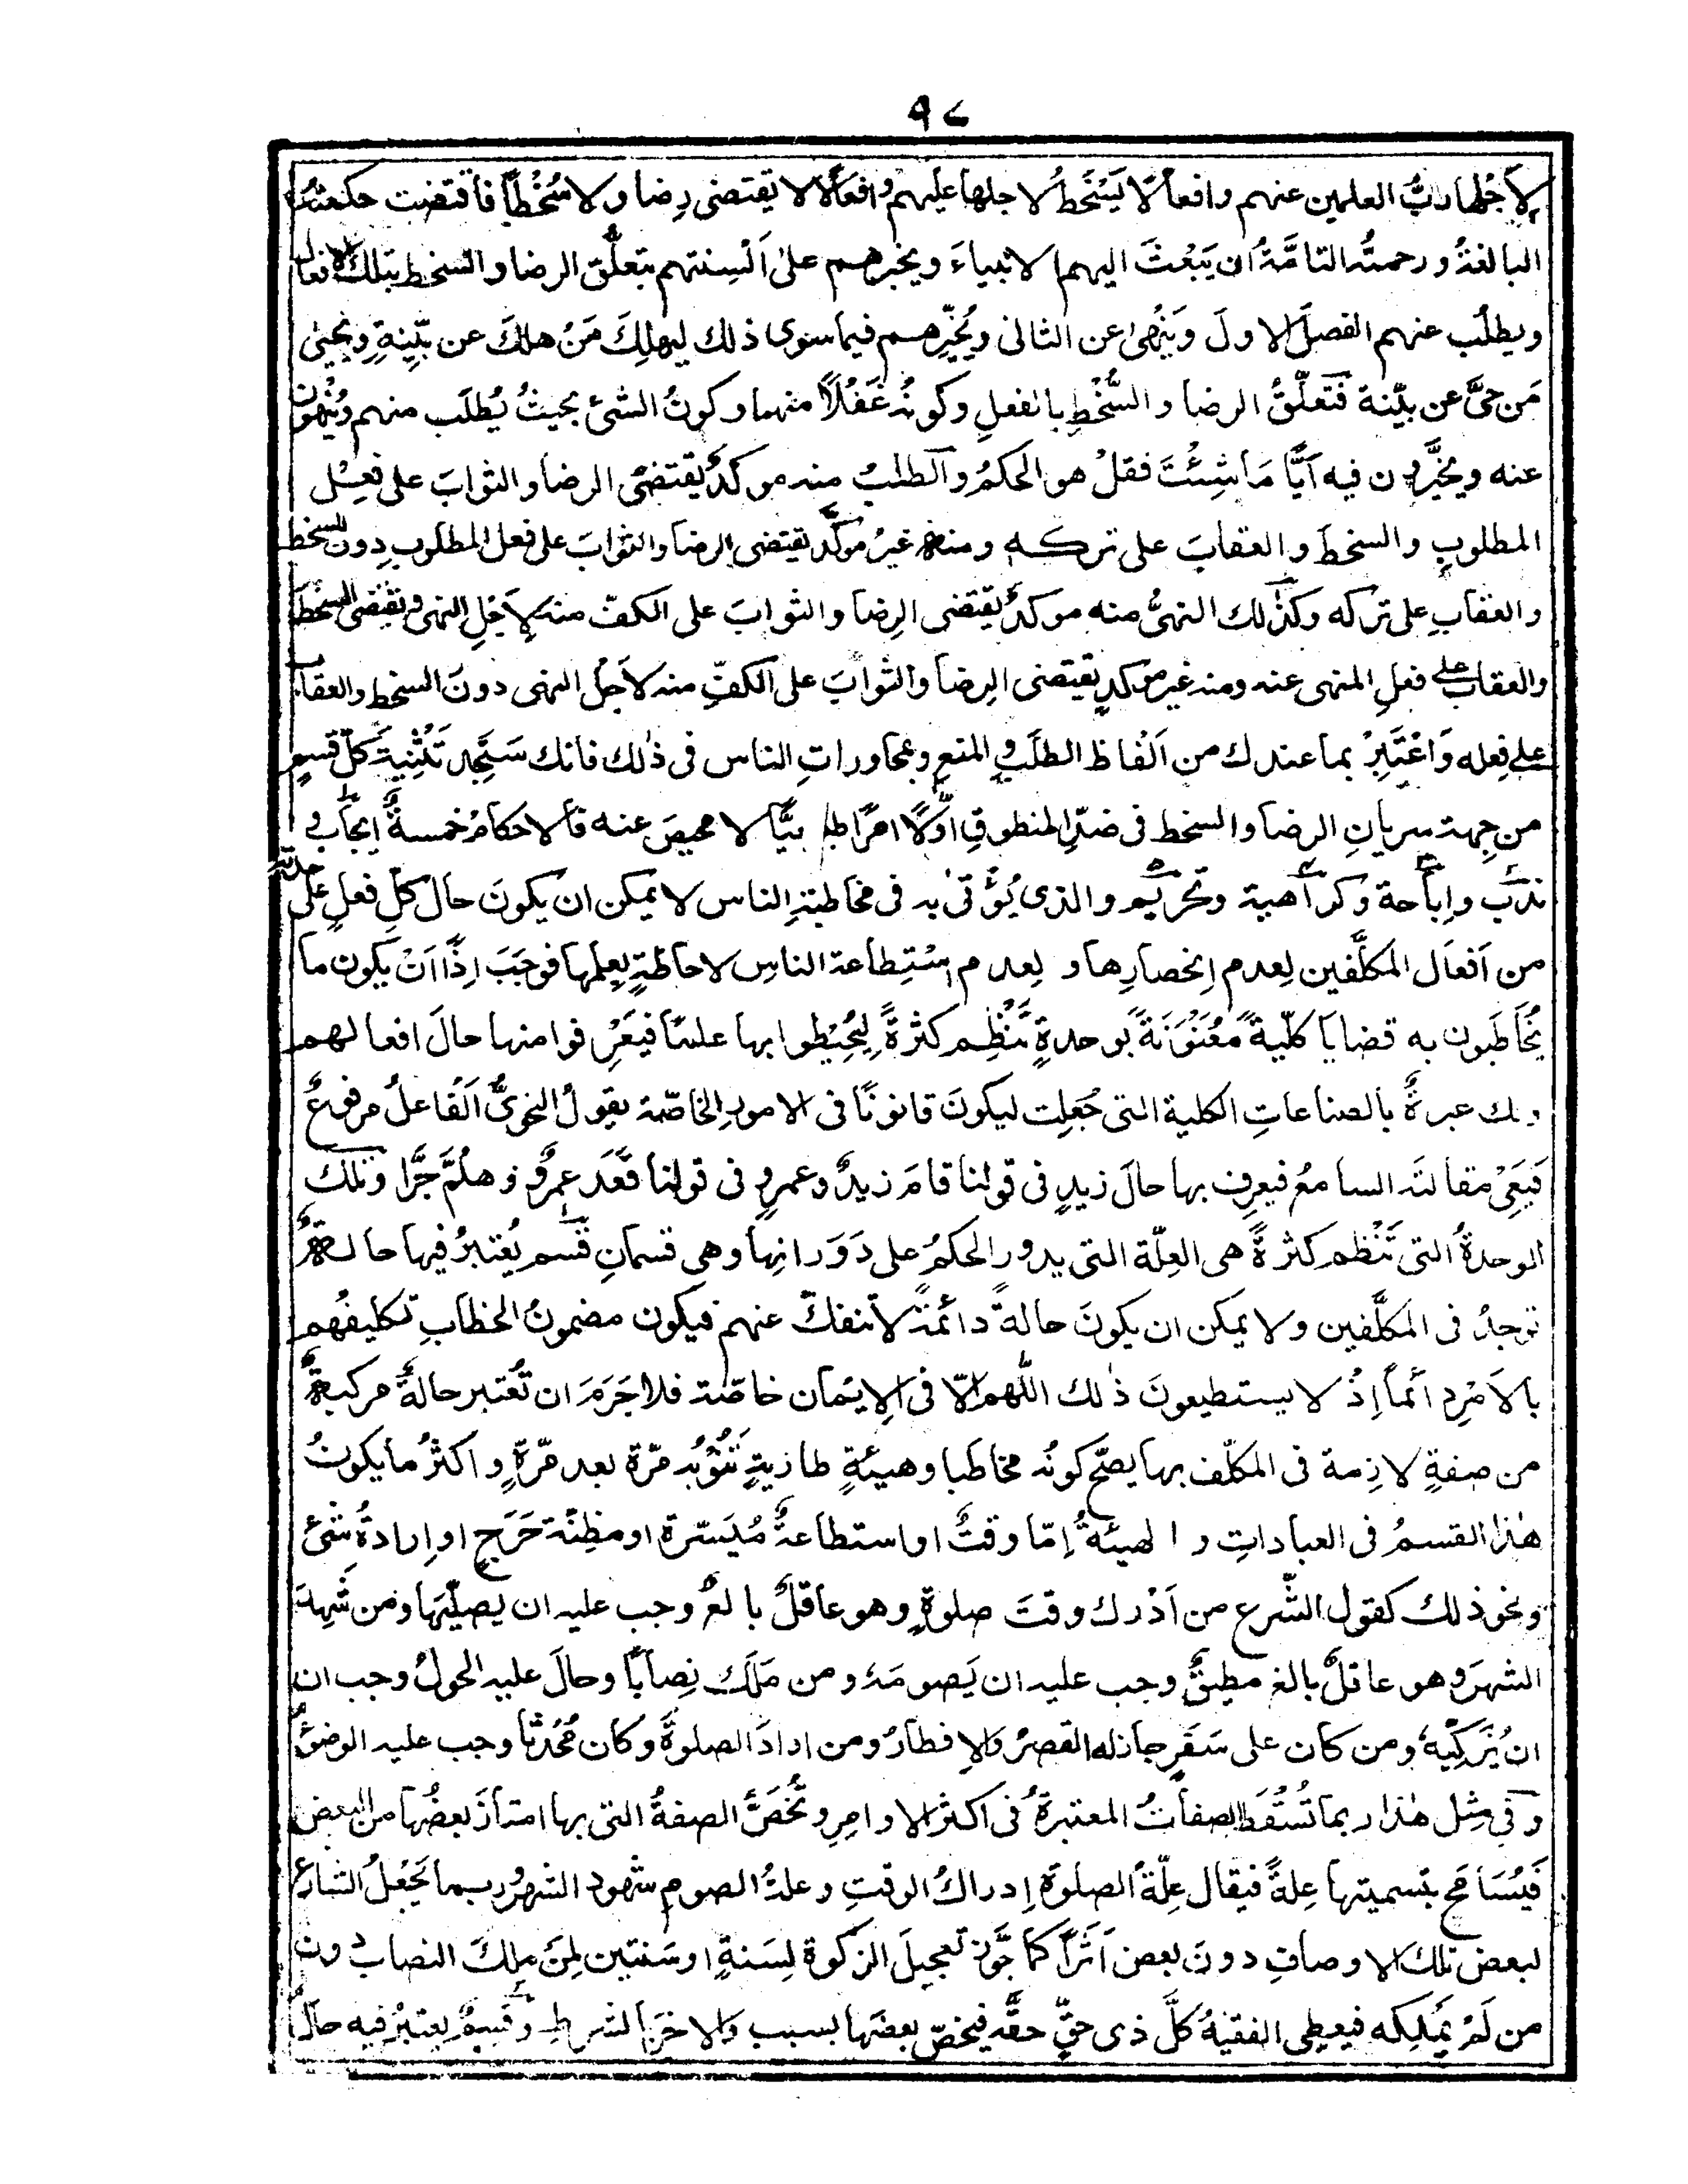 ٩٧
لاَجْلها ربُّ العلمين عنهم وافعالًا يَسْخَطُ لاجلها عليهم وافعالًا لا تقتضى رِضا ولا سُخْطًا فاقتضت حكمتُه
البالغةُ ورحمتُه التامَّةُ ان يَبْعَثَ اليهم الانبياءَ ويخبرهم على اَلْسِنتهم بتعلُّق الرضا والسخط بتلك الافعال
ويطلُب عنهم الفصلَ الاولَ وَيَنْهىٰ عن الثانى ويُخَيِّرهم فيما سوى ذلك ليهلِكَ مَنْ هلكَ عن بيّنةٍ ويَحْيىٰ
مَن حىَّ عن بيّنة فَتعلّقُ الرضا والسُّخْطِ بالفعلِ وكونُه غَفْلاً منهما وكونُ الشئ بحيثُ يُطلَب منهم ويُنْهون
عنه ويُخيَّرون فيه اَيًّا مَا شِئْتَ فقلْ هو الحكمُ والطلبُ منه موكَّدٌ يقتضى الرضا والثوابَ على فعل
المطلوبِ والسخطَ والعقابَ على تركه ومنه غيرُ موكَّدٍ يقتضى الرضا والثوابَ على فعل المطلوبِ دون السخط
والعقابِ على تركه وكذٰلك النهىُ منه موكدٌ يقتضى الرِضا والثوابَ على الكفّ منه لِاَجْلِ النهى ويقتضى السخطَ
والعقابَ على فعلِ المنهى عنه ومنه غير موكدٍ يقتضى الرِضا والثوابَ على الكفِّ منه لاَجْل النهى دونَ السخط والعقاب
على فِعله وَاعْتَبِرْ بما عندك من اَلْفاظ الطلَبِ والمنعِ ومحاوراتِ الناس فى ذٰلك فانك سَتَجِد تَثْنِيةَ كلِّ قسمٍ
من جِهة سريانِ الرضا والسخط فى ضدِّ المنطوقِ اوّلًا امرًا طبيعيًّا لا محيصَ عنه فالاحكامُ خمسةٌ ايجابٌ و
ندبٌ واِباحة وكراهية وتحريم والذى يُؤتىٰ به فى مخاطبةِ الناس لا يمكن ان يكونَ حال كلِّ فعلٍ على حدته
من اَفعال المكلَّفين لِعدم اِنحصارِها ولِعدم اسْتِطاعة الناسِ لاحاطةٍ بِعلمها فوجَبَ اِذًا اَنْ يكون ما
يُخاطَبون به قضايا كلّيةً مُعَنْوَنَةً بوحدةٍ تَنْظِم كثرةً لِيُحِيْطوا بها علمًا فيَعْرِفوا منها حالَ افعالهم
ولك عبرةٌ بالصناعاتِ الكلية التى جُعِلت ليكونَ قانونًا فى الامورِ الخاصّة يقولُ النحوىُّ اَلْفاعلُ مرفوعٌ
فيَعِىْ مقالتَه السامعُ فيعرِف بها حالَ زيدٍ فى قولنا قامَ زيدٌ وعمروٍ فى قولنا قَعَد عمرٌو وهلُمَّ جرًّا وتلك
الوحدةُ التى تَنْظِم كثرةً هى العِلّة التى يدور الحكمُ على دَوَرانِها وهى قسمانِ قسم يُعتبرُ فيها حالةٌ
توجدُ فى المكلَّفين ولا يمكن ان يكونَ حالةً دائمةً لا تنفكّ عنهم فيكون مضمونُ الخطابِ تكليفُهم
بالاَمْرِ دائماً اِذْ لا يستطيعونَ ذٰلك اللّٰهم الّا فى الاِيمان خاصّة فلا جَرَمَ ان تُعتبر حالةٌ مركبةٌ
من صفةٍ لازِمة فى المكلّف بها يصحّ كونُه مخاطبا وهيئةٍ طاريةٍ تَنُوْبُه مرّة بعد مرّةٍ واكثرُ ما يكونُ
هٰذا القسمُ فى العباداتِ والهيئةُ اِمّا وقتٌ او استطاعةٌ مُيَسّرة او مظِنّة حَرَجٍ او اِرادةُ شىْءٍ
ونحو ذلك كقول الشّرع من اَدْرك وقتَ صلوةٍ وهو عاقلٌ بالغٌ وجب عليه ان يصلّيها ومن شَهِدَ
الشهرَ وهو عاقلٌ بالغ مطيقٌ وجب عليه ان يَصومَهٗ ومن مَلَكَ نِصاباً وحالَ عليه الحولُ وجب ان
ان يُزَكِّيه ومن كان على سَفَرٍ جاز له القصرُ والاِفطارُ ومن ارادَ الصلوةَ وكان مُحْدثًا وجب عليه الوضوءُ
وفى مِثل هٰذا ربما تُسْقَط الصفاتُ المعتبرةُ فى اكثر الاوامرِ وتُخَصَّ الصفةُ التى بها امتازَ بعضُها من البعض
فَيُسَامَح بتسميتها عِلةً فيقال عِلّةُ الصلوة اِدراكُ الوقتِ وعلةُ الصومِ شهود الشهر وربما يَجْعلُ الشارع
لبعض تلك الاوصافِ دونَ بعض اَثراً كما جَوَّز تعجيلَ الزكوة لِسَنةٍ او سَنتين لِمَن ملكَ النصاب دون
من لَمْ يَمْلِكه فيعطِى الفقيهُ كلَّ ذى حقٍّ حقَّه فيخصّ بعضَها بسبب والاخر بالشرط وقسمٌ يعتبرُ فيه حالُ